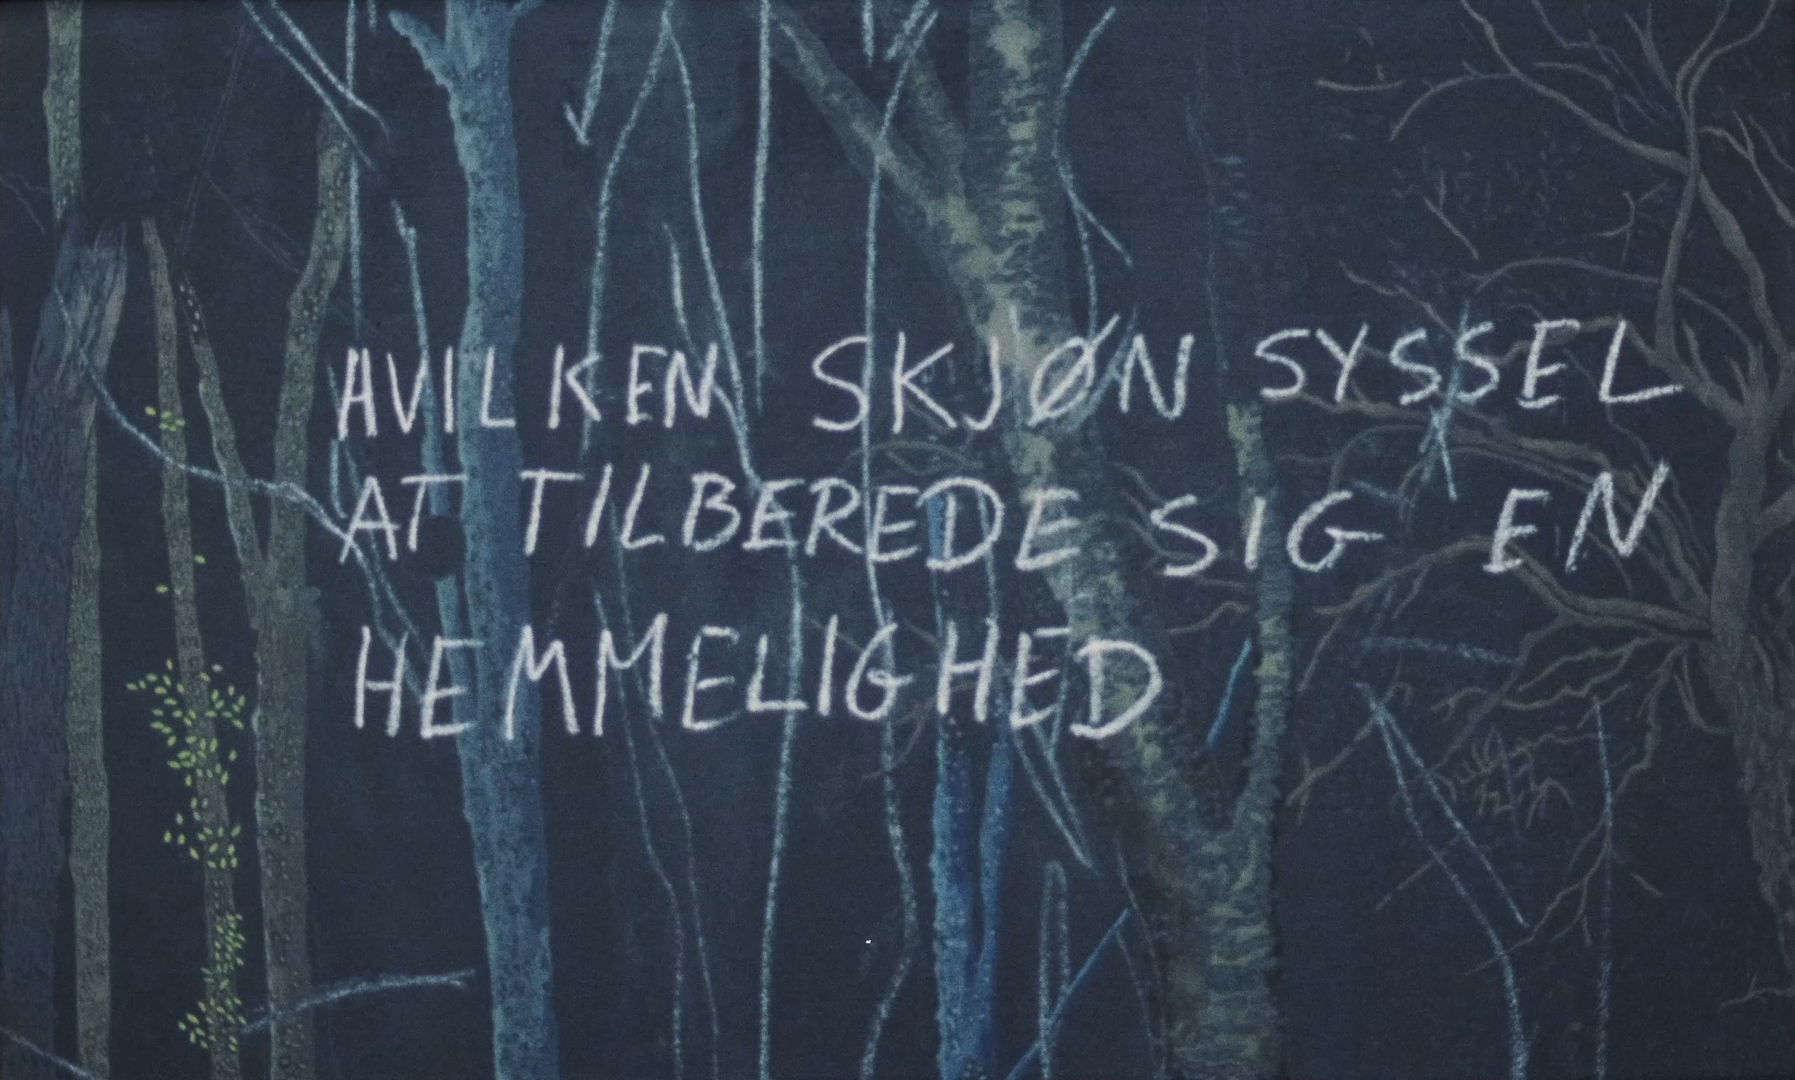 AVILKEN SKJØN SYSSEL
AT TILBEREDE SIG EN
HEMMELIGHED